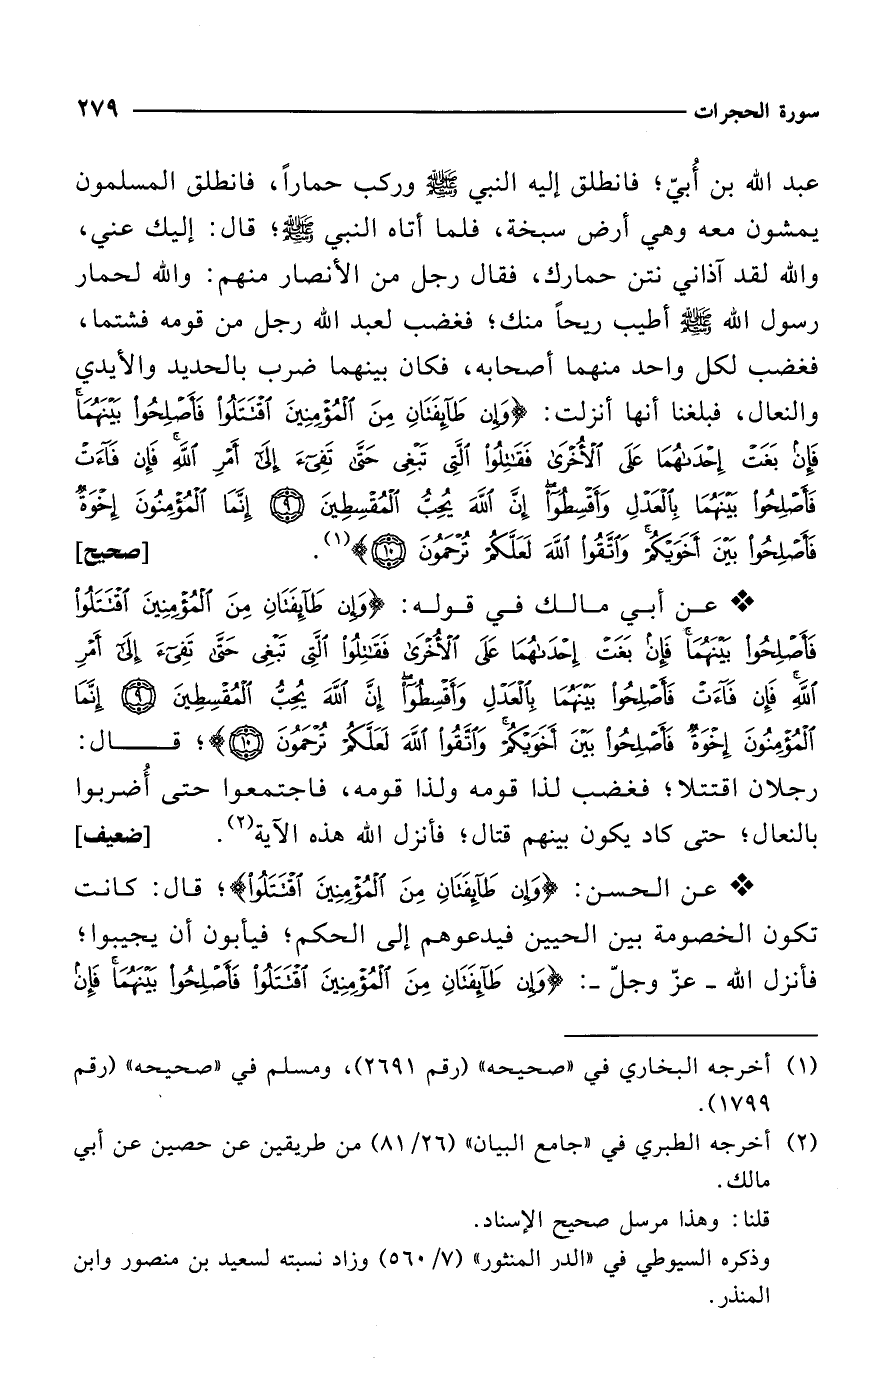 سورة الحجرات ٢٧٩
عبد الله بن أُبيّ؛ فانطلق إليه النبي ﷺ وركب حماراً، فانطلق المسلمون
يمشون معه وهي أرض سبخة، فلما أتاه النبي ﷺ؛ قال: إليك عني،
والله لقد آذاني نتن حمارك، فقال رجل من الأنصار منهم: والله لحمار
رسول الله ﷺ أطيب ريحاً منك؛ فغضب لعبد الله رجل من قومه فشتما،
فغضب لكل واحد منهما أصحابه، فكان بينهما ضرب بالحديد والأيدي
والنعال، فبلغنا أنها أنزلت: ﴿وَإِن طَآئِفَتَانِ مِنَ ٱلْمُؤْمِنِينَ ٱقْتَتَلُوا۟ فَأَصْلِحُوا۟ بَيْنَهُمَاۖ
فَإِنۢ بَغَتْ إِحْدَىٰهُمَا عَلَى ٱلْأُخْرَىٰ فَقَٰتِلُوا۟ ٱلَّتِى تَبْغِى حَتَّىٰ تَفِىٓءَ إِلَىٰٓ أَمْرِ ٱللَّهِۚ فَإِن فَآءَتْ
فَأَصْلِحُوا۟ بَيْنَهُمَا بِٱلْعَدْلِ وَأَقْسِطُوٓا۟ۖ إِنَّ ٱللَّهَ يُحِبُّ ٱلْمُقْسِطِينَ ۝٩ إِنَّمَا ٱلْمُؤْمِنُونَ إِخْوَةٌ
فَأَصْلِحُوا۟ بَيْنَ أَخَوَيْكُمْۚ وَٱتَّقُوا۟ ٱللَّهَ لَعَلَّكُمْ تُرْحَمُونَ ۝١٠﴾(١). [صحيح]
❖ عن أبي مالك في قوله: ﴿وَإِن طَآئِفَتَانِ مِنَ ٱلْمُؤْمِنِينَ ٱقْتَتَلُوا۟
فَأَصْلِحُوا۟ بَيْنَهُمَاۖ فَإِنۢ بَغَتْ إِحْدَىٰهُمَا عَلَى ٱلْأُخْرَىٰ فَقَٰتِلُوا۟ ٱلَّتِى تَبْغِى حَتَّىٰ تَفِىٓءَ إِلَىٰٓ أَمْرِ
ٱللَّهِۚ فَإِن فَآءَتْ فَأَصْلِحُوا۟ بَيْنَهُمَا بِٱلْعَدْلِ وَأَقْسِطُوٓا۟ۖ إِنَّ ٱللَّهَ يُحِبُّ ٱلْمُقْسِطِينَ ۝٩ إِنَّمَا
ٱلْمُؤْمِنُونَ إِخْوَةٌ فَأَصْلِحُوا۟ بَيْنَ أَخَوَيْكُمْۚ وَٱتَّقُوا۟ ٱللَّهَ لَعَلَّكُمْ تُرْحَمُونَ ۝١٠﴾؛ قال:
رجلان اقتتلا؛ فغضب لذا قومه ولذا قومه، فاجتمعوا حتى أُضربوا
بالنعال؛ حتى كاد يكون بينهم قتال؛ فأنزل الله هذه الآية(٢). [ضعيف]
❖ عن الحسن: ﴿وَإِن طَآئِفَتَانِ مِنَ ٱلْمُؤْمِنِينَ ٱقْتَتَلُوا۟﴾؛ قال: كانت
تكون الخصومة بين الحيين فيدعوهم إلى الحكم؛ فيأبون أن يجيبوا؛
فأنزل الله ـ عزّ وجلّ ـ: ﴿وَإِن طَآئِفَتَانِ مِنَ ٱلْمُؤْمِنِينَ ٱقْتَتَلُوا۟ فَأَصْلِحُوا۟ بَيْنَهُمَاۖ فَإِنۢ
(١) أخرجه البخاري في «صحيحه» (رقم ٢٦٩١)، ومسلم في «صحيحه» (رقم
١٧٩٩).
(٢) أخرجه الطبري في «جامع البيان» (٢٦/ ٨١) من طريقين عن حصين عن أبي
مالك.
قلنا: وهذا مرسل صحيح الإسناد.
وذكره السيوطي في «الدر المنثور» (٧/ ٥٦٠) وزاد نسبته لسعيد بن منصور وابن
المنذر.